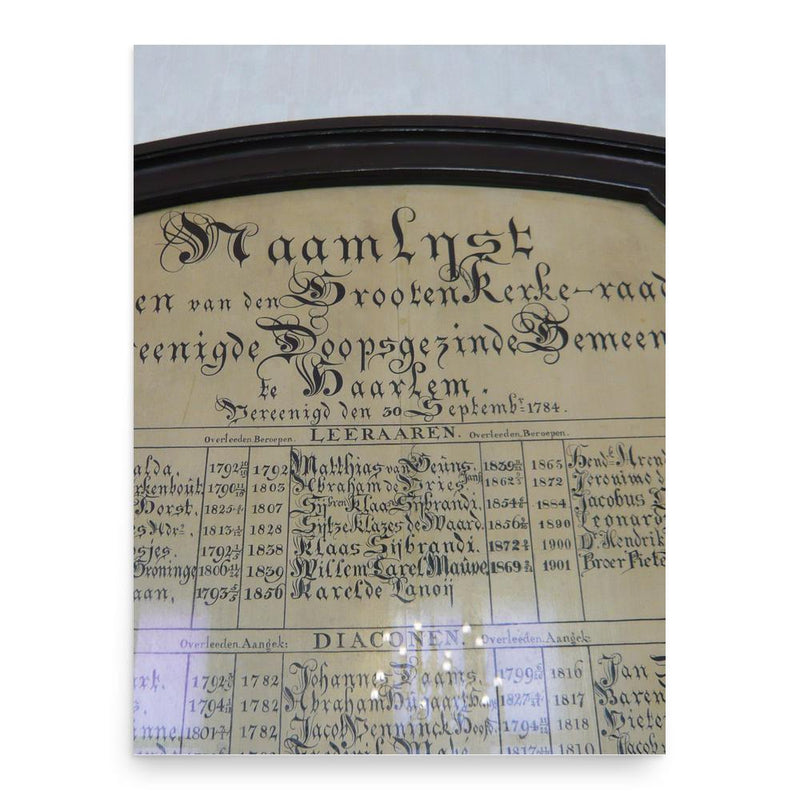 Naamlyst
en van den Grooten Kerke-raad
reenigde Doopsgezinde Gemeen
te Haarlem.
Vereenigd den 30 Septembr. 1784.
Overleeden. Beroepen. LEERAAREN. Overleeden. Beroepen.
alda. 1792 1792 Matthias van Geuns. 1839 1865 Hend
rkenbout 1790 1803 Abraham de Vries 1862 1872 Jeronimo d
Horst. 1825 1807 Sijbren Klaas Sijbrandi. 1854 1884 Jacobus
1813 1828 Sijtze Klazes de Waard. 1856 1890 Leonard
sjes. 1792 1838 Klaas Sijbrandi. 1872 1900 Dr. Hendrik
Groninge 1806 1839 Willem Carel Mauve 1869 1901 Broer Piete
aan. 1793 1856 Karel de Lanoij
Overleeden. Aangek: DIACONEN. Overleeden. Aangek:
art. 1792 1782 Johannes Daams. 1799 1816 Jan
s. 1794 1782 Abraham 1827 1817 Baren
inne 1801 1782 Jacob Penninck Hoofd. 1794 1818 Pieter
Frederik 1817 1819 Jacob